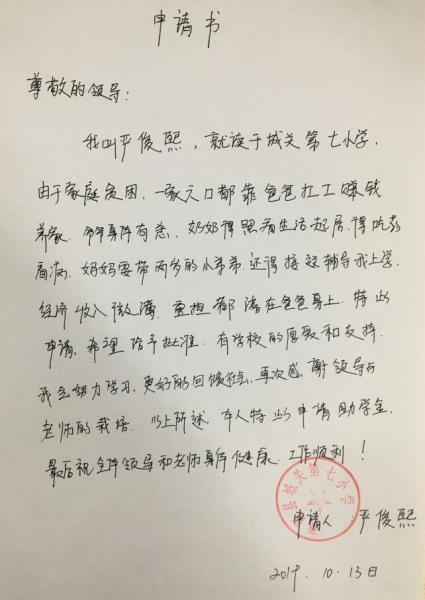 申请书
尊敬的领导：
我叫严俊熙，就读于城关第七小学，
由于家庭贫困，一家六口都靠爸爸打工赚钱
养家，爷爷身体有恙，奶奶得照看生活起居，得吃药
看病，妈妈要带两岁的小弟弟，还得接送辅导我上学，
经济收入微薄，重担都落在爸爸身上，特此
申请，希望给予批准，有学校的厚爱和支持，
我会努力学习，更好的回馈社会，再次感谢领导与
老师的栽培，以上所述，本人特此申请助学金，
最后祝全体领导和老师身体健康，工作顺利！
县城关第七小学
申请人：严俊熙
2019.10.13日